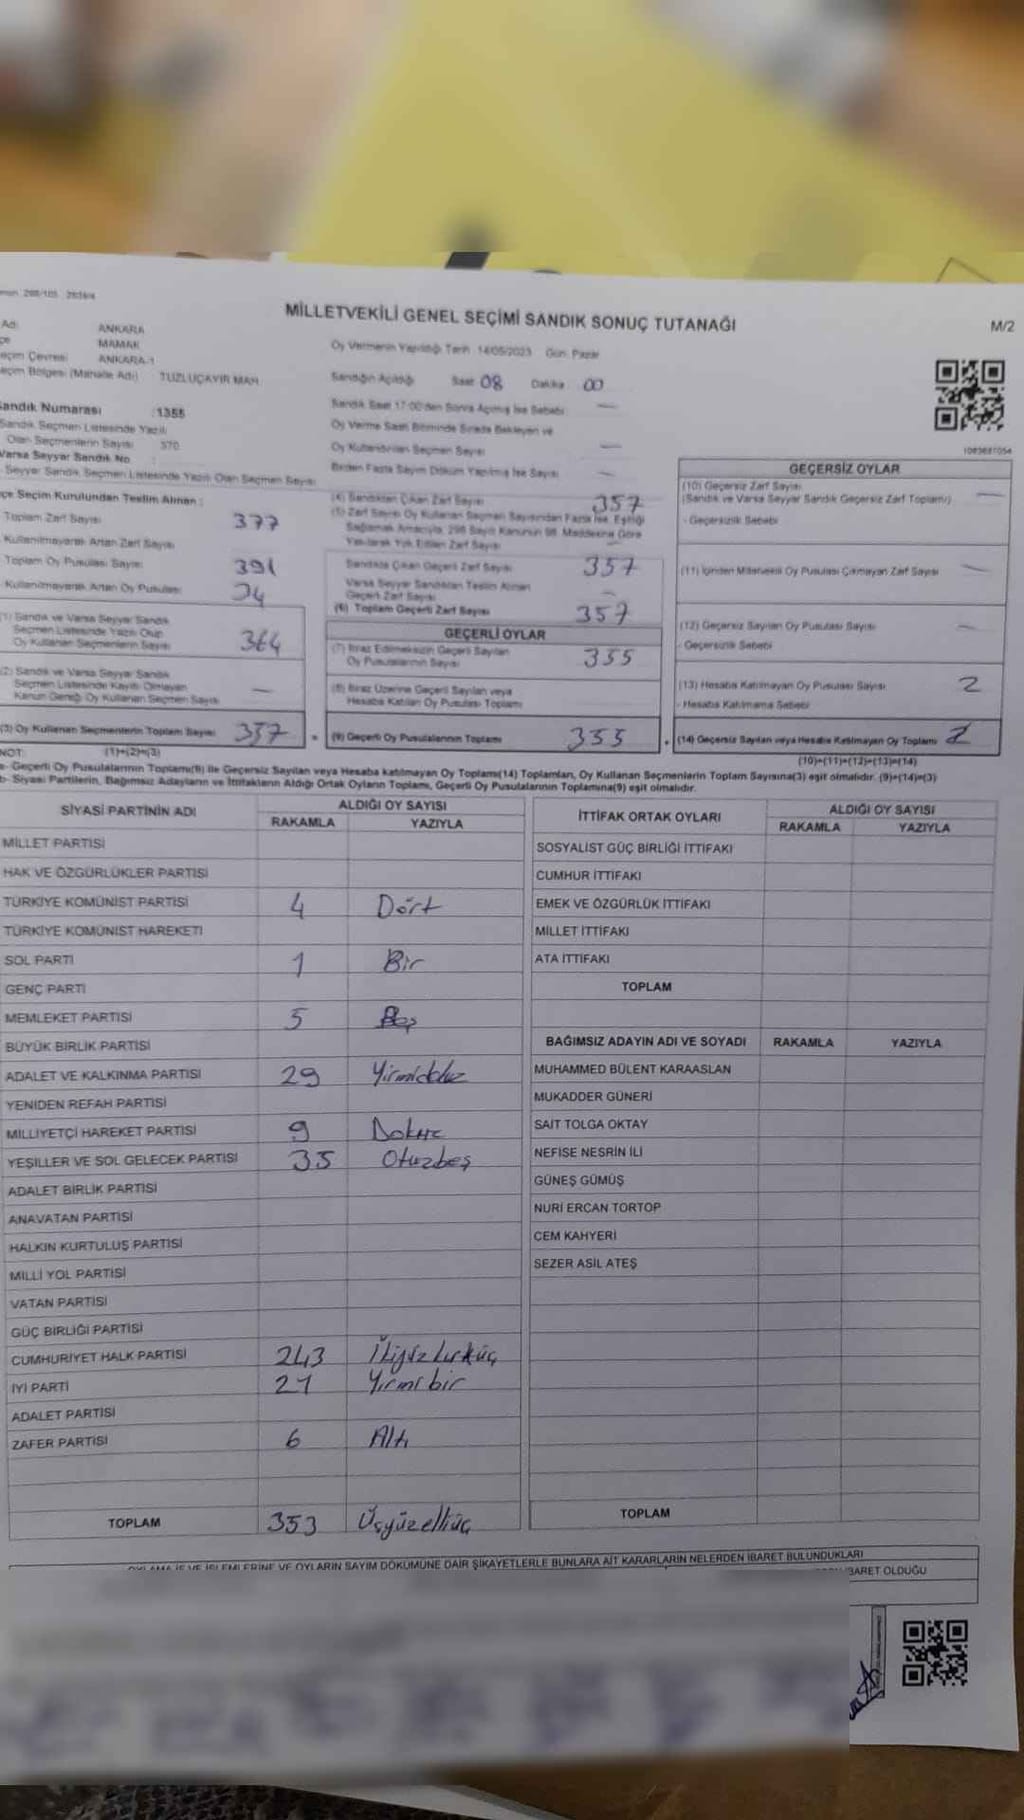 MİLLETVEKİLİ GENEL SEÇİMİ SANDIK SONUÇ TUTANAĞI
M/2
Adı: ANKARA
MAMAK
eçim Çevresi: ANKARA-1
eçim Bölgesi (Mahalle Adı) TUZLUÇAYIR MAH.
Oy Vermenin Yapıldığı Tarih 14/05/2023 Gün: Pazar
Sandığın Açıldığı Saat 08 Dakika 00
Sandık Saat 17:00'den Sonra Açılmış İse Sebebi —
Oy Verme Saati Bitiminde Sırada Bekleyen ve
Oy Kullandırılan Seçmen Sayısı —
Birden Fazla Sayım Döküm Yapılmış İse Sayısı —
andık Numarası :1355
Sandık Seçmen Listesinde Yazılı
Olan Seçmenlerin Sayısı 370
Varsa Seyyar Sandık No
Seyyar Sandık Seçmen Listesinde Yazılı Olan Seçmen Sayısı
çe Seçim Kurulundan Teslim Alınan :
Toplam Zarf Sayısı 377
Kullanılmayarak Artan Zarf Sayısı
Toplam Oy Pusulası Sayısı 391
Kullanılmayarak Artan Oy Pusulası 34
(1) Sandık ve Varsa Seyyar Sandık
Seçmen Listesinde Yazılı Olup
Oy Kullanan Seçmenlerin Sayısı 364
(2) Sandık ve Varsa Seyyar Sandık
Seçmen Listesinde Kayıtlı Olmayan
Kanun Gereği Oy Kullanan Seçmen Sayısı —
(3) Oy Kullanan Seçmenlerin Toplam Sayısı 357
(1)+(2)=(3)
(4) Sandıktan Çıkan Zarf Sayısı 357
(5) Zarf Sayısı Oy Kullanan Seçmen Sayısından Fazla İse, Eşitliği
Sağlamak Amacıyla, 298 Sayılı Kanunun 98. Maddesine Göre
Yakılarak Yok Edilen Zarf Sayısı
Sandıkta Çıkan Geçerli Zarf Sayısı 357
Varsa Seyyar Sandıktan Teslim Alınan
Geçerli Zarf Sayısı —
(6) Toplam Geçerli Zarf Sayısı 357
GEÇERLİ OYLAR
(7) İtiraz Edilmeksizin Geçerli Sayılan
Oy Pusulalarının Sayısı 355
(8) İtiraz Üzerine Geçerli Sayılan veya
Hesaba Katılan Oy Pusulası Toplamı
(9) Geçerli Oy Pusulalarının Toplamı 355
1083687054
GEÇERSİZ OYLAR
(10) Geçersiz Zarf Sayısı
(Sandık ve Varsa Seyyar Sandık Geçersiz Zarf Toplamı) —
- Geçersizlik Sebebi
(11) İçinden Milletvekili Oy Pusulası Çıkmayan Zarf Sayısı —
(12) Geçersiz Sayılan Oy Pusulası Sayısı —
- Geçersizlik Sebebi
(13) Hesaba Katılmayan Oy Pusulası Sayısı 2
- Hesaba Katılmama Sebebi
(14) Geçersiz Sayılan veya Hesaba Katılmayan Oy Toplamı 2
(10)+(11)+(12)+(13)=(14)
NOT:
a- Geçerli Oy Pusulalarının Toplamı(9) ile Geçersiz Sayılan veya Hesaba katılmayan Oy Toplamı(14) Toplamları, Oy Kullanan Seçmenlerin Toplam Sayısına(3) eşit olmalıdır. (9)+(14)=(3)
b- Siyasi Partilerin, Bağımsız Adayların ve İttifakların Aldığı Ortak Oyların Toplamı, Geçerli Oy Pusulalarının Toplamına(9) eşit olmalıdır.
SİYASİ PARTİNİN ADI ALDIĞI OY SAYISI
RAKAMLA YAZIYLA
MİLLET PARTİSİ
HAK VE ÖZGÜRLÜKLER PARTİSİ
TÜRKİYE KOMÜNİST PARTİSİ 4 Dört
TÜRKİYE KOMÜNİST HAREKETİ
SOL PARTİ 1 Bir
GENÇ PARTİ
MEMLEKET PARTİSİ 5 Beş
BÜYÜK BİRLİK PARTİSİ
ADALET VE KALKINMA PARTİSİ 29 Yirmidokuz
YENİDEN REFAH PARTİSİ
MİLLİYETÇİ HAREKET PARTİSİ 9 Dokuz
YEŞİLLER VE SOL GELECEK PARTİSİ 35 Otuzbeş
ADALET BİRLİK PARTİSİ
ANAVATAN PARTİSİ
HALKIN KURTULUŞ PARTİSİ
MİLLİ YOL PARTİSİ
VATAN PARTİSİ
GÜÇ BİRLİĞİ PARTİSİ
CUMHURİYET HALK PARTİSİ 243 İkiyüzkırküç
İYİ PARTİ 21 Yirmi bir
ADALET PARTİSİ
ZAFER PARTİSİ 6 Altı
TOPLAM 353 Üçyüzelliüç
İTTİFAK ORTAK OYLARI ALDIĞI OY SAYISI
RAKAMLA YAZIYLA
SOSYALİST GÜÇ BİRLİĞİ İTTİFAKI
CUMHUR İTTİFAKI
EMEK VE ÖZGÜRLÜK İTTİFAKI
MİLLET İTTİFAKI
ATA İTTİFAKI
TOPLAM
BAĞIMSIZ ADAYIN ADI VE SOYADI RAKAMLA YAZIYLA
MUHAMMED BÜLENT KARAASLAN
MUKADDER GÜNERİ
SAİT TOLGA OKTAY
NEFİSE NESRİN İLİ
GÜNEŞ GÜMÜŞ
NURİ ERCAN TORTOP
CEM KAHYERİ
SEZER ASİL ATEŞ
TOPLAM
İŞLEMLERİNE VE OYLARIN SAYIM DÖKÜMÜNE DAİR ŞİKAYETLERLE BUNLARA AİT KARARLARIN NELERDEN İBARET BULUNDUKLARI
İBARET OLDUĞU